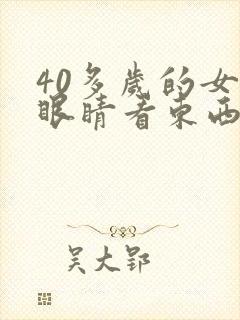 40多岁的女
眼睛看东西
吴大郢